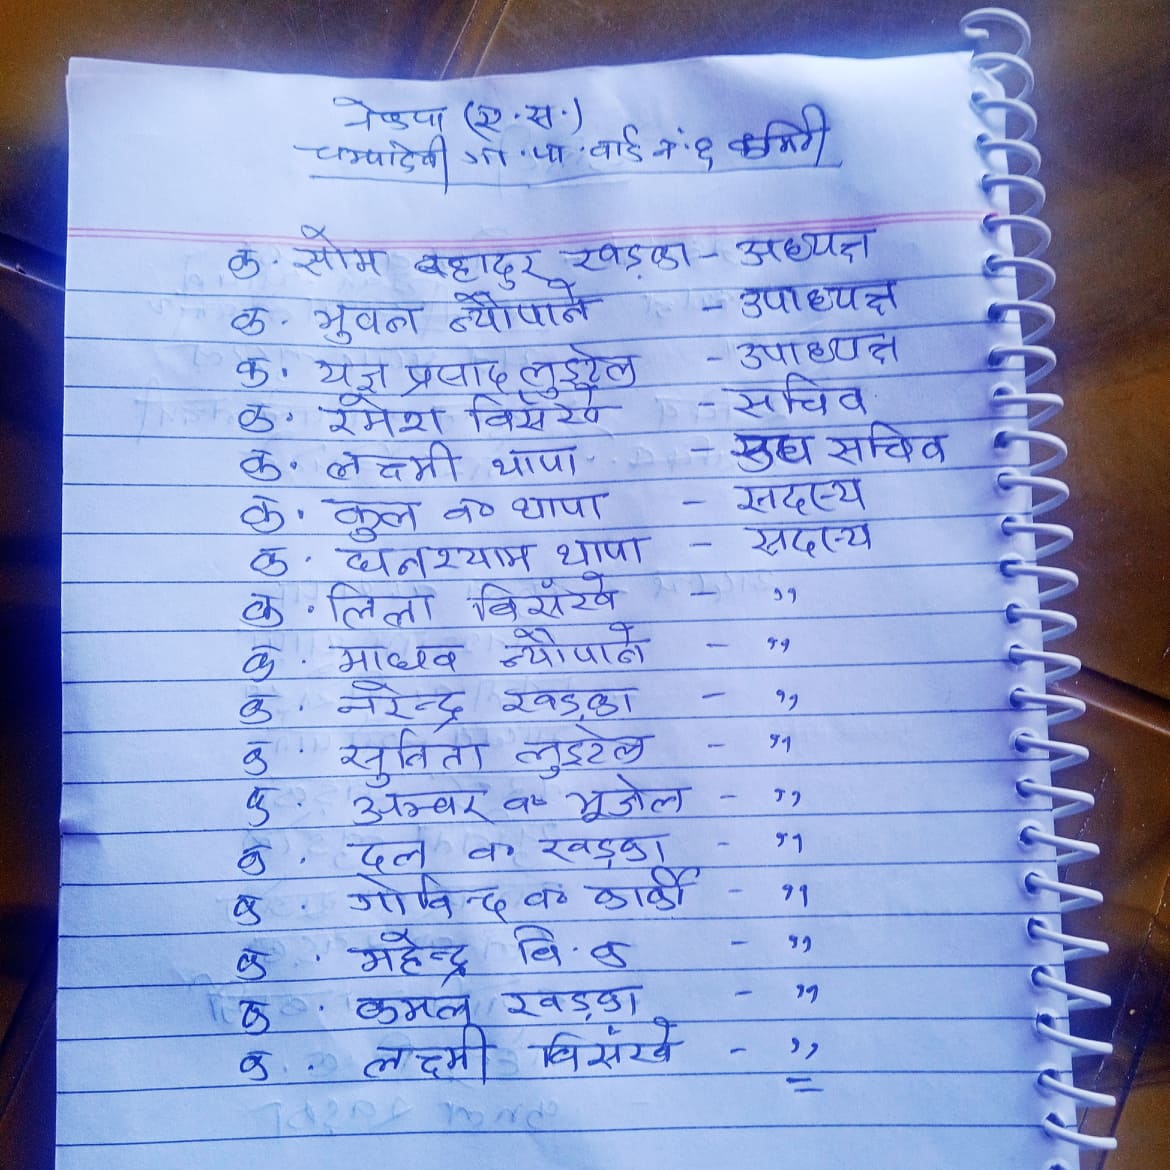 नेकपा (ए.स.)
चम्पादेवी गा.पा.वार्ड नं.६ कमिटी
क. सोम बहादुर खड्का - अध्यक्ष
क. भुवन न्यौपाने - उपाध्यक्ष
क. यज्ञ प्रसाद लुइटेल - उपाध्यक्ष
क. रमेश विसंखे - सचिव
क. लक्ष्मी थापा - सचिव
क. कुल व० थापा - सदस्य
क. घनश्याम थापा - सदस्य
क. लिला विसंखे - ,,
क. माधव न्यौपाने - ,,
क. नरेन्द्र खड्का - ,,
क. सुनिता लुइटेल - ,,
क. अम्वर व० भूजेल - ,,
क. दल व० खड्का - ,,
क. गोविन्द व० कार्की - ,,
क. महेन्द्र वि.क - ,,
क. कमल खड्का - ,,
क. लक्ष्मी विसंखे - ,,